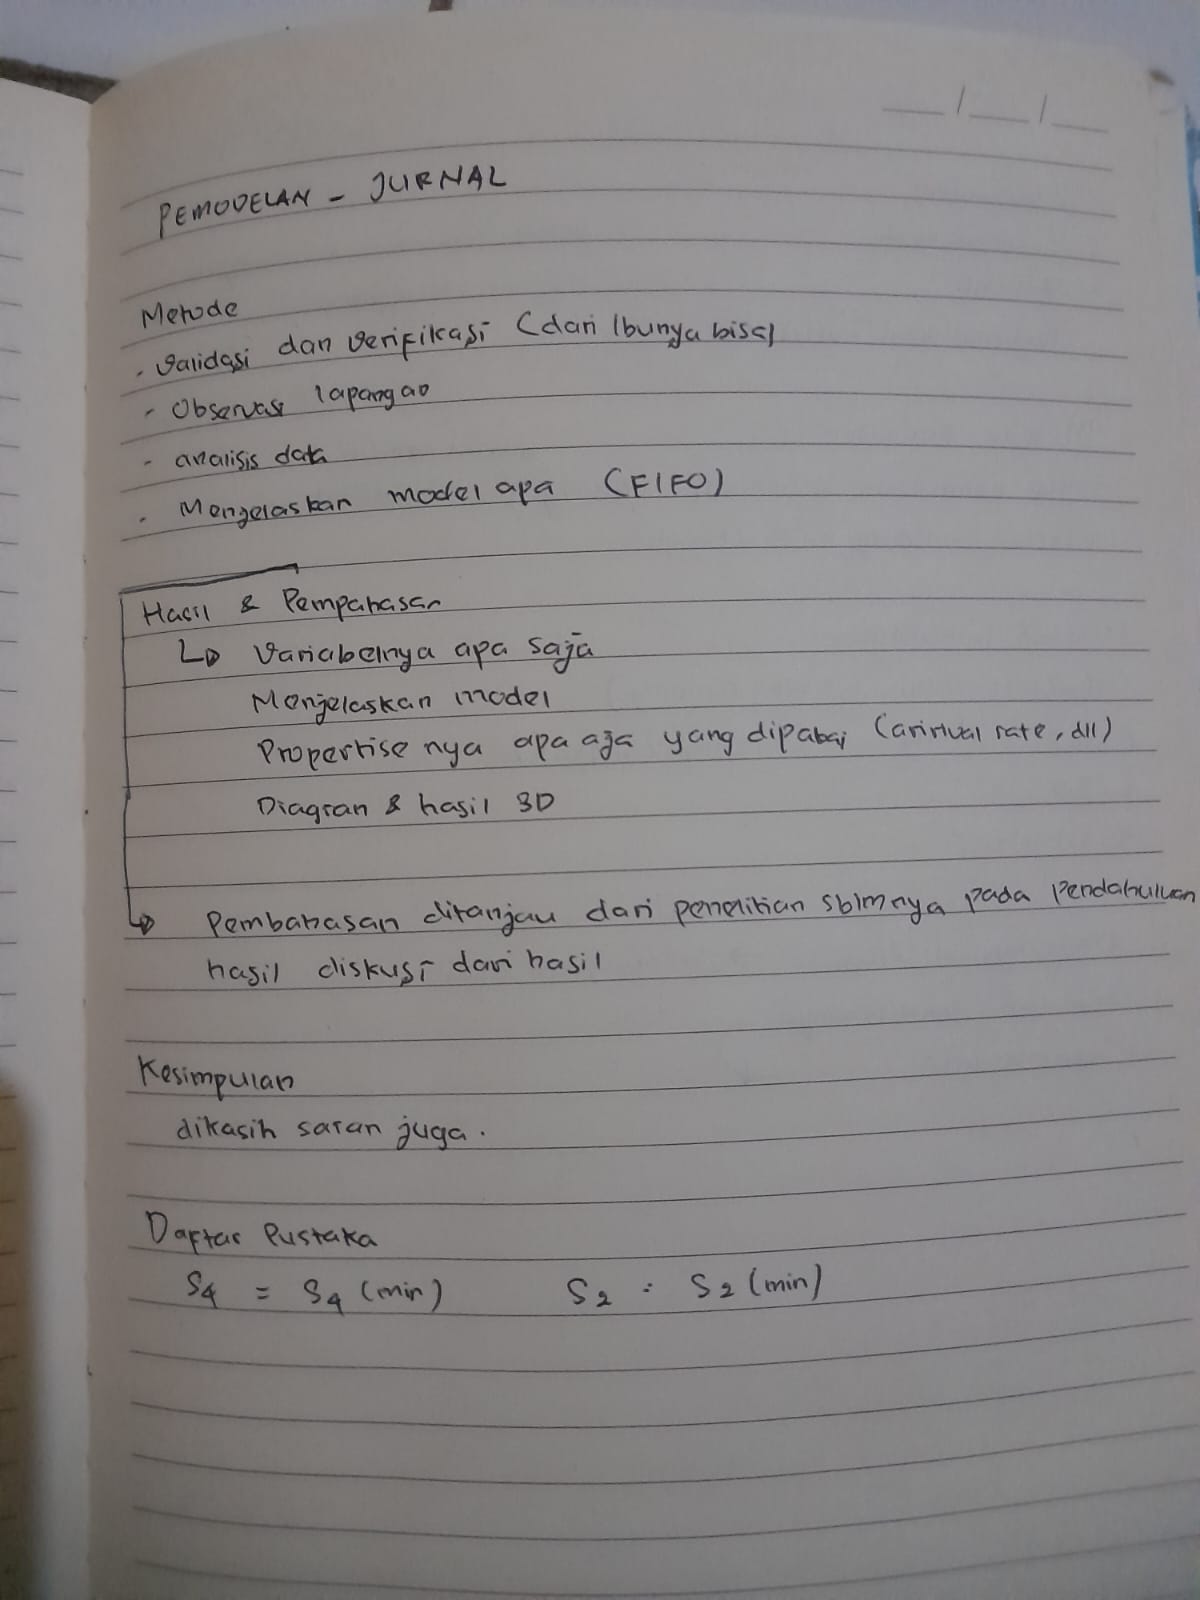 PEMODELAN - JURNAL
Metode
- Validasi dan Verifikasi (dari Ibunya bisa)
- Observasi lapangan
- analisis data
- Menjelaskan model apa (FIFO)
Hasil & Pempahasan
↳ Variabelnya apa saja
Menjelaskan model
Propertise nya apa aja yang dipakai (aririval rate, dll)
Diagran & hasil 3D
↳ Pembahasan ditanjau dari penelitian sblmnya pada Pendahuluan
hasil diskusi dari hasil
Kesimpulan
dikasih saran juga.
Daftar Pustaka
S4 = S4 (min) S2 : S2 (min)